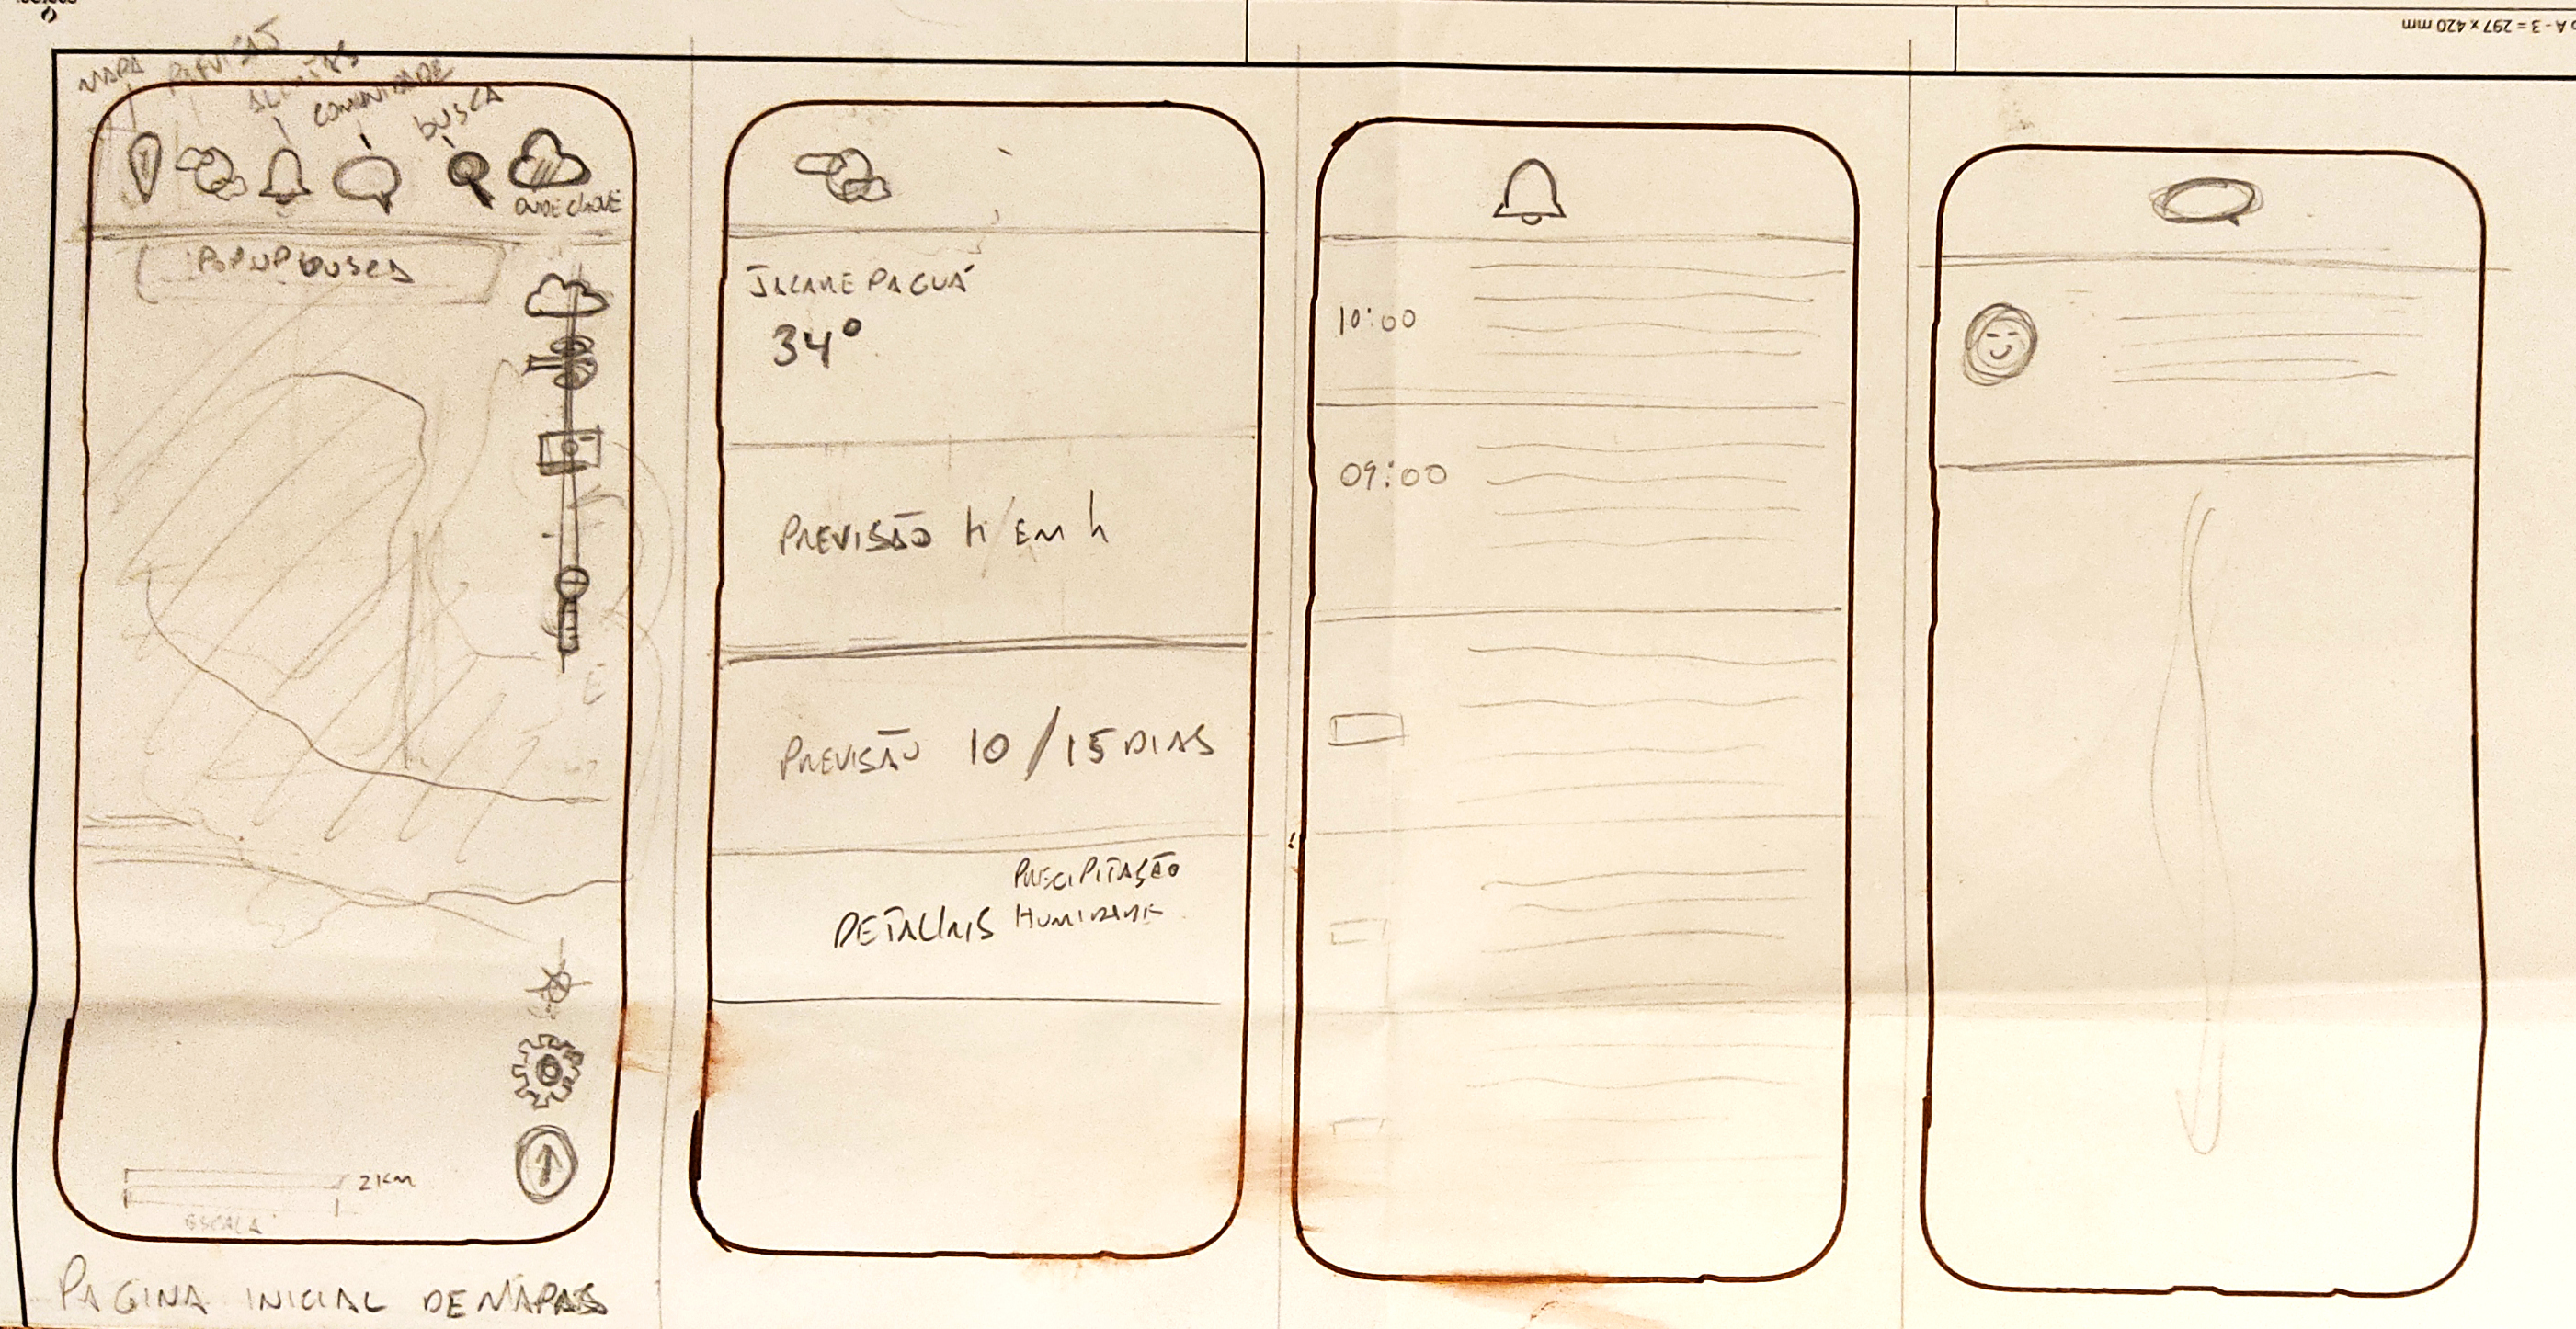 A - 3 = 297 x 420 mm
MAPA
PREVISÃO
ALERTAS
COMUNIDADE
BUSCA
ONDE CHOVE
POPUP BUSCA
2 KM
ESCALA
PAGINA INICIAL DE MAPAS
JACAREPAGUÁ
34°
PREVISÃO H/EM h
PREVISÃO 10/15 DIAS
PRECIPITAÇÃO
DETALHES HUMIDADE
10:00
09:00